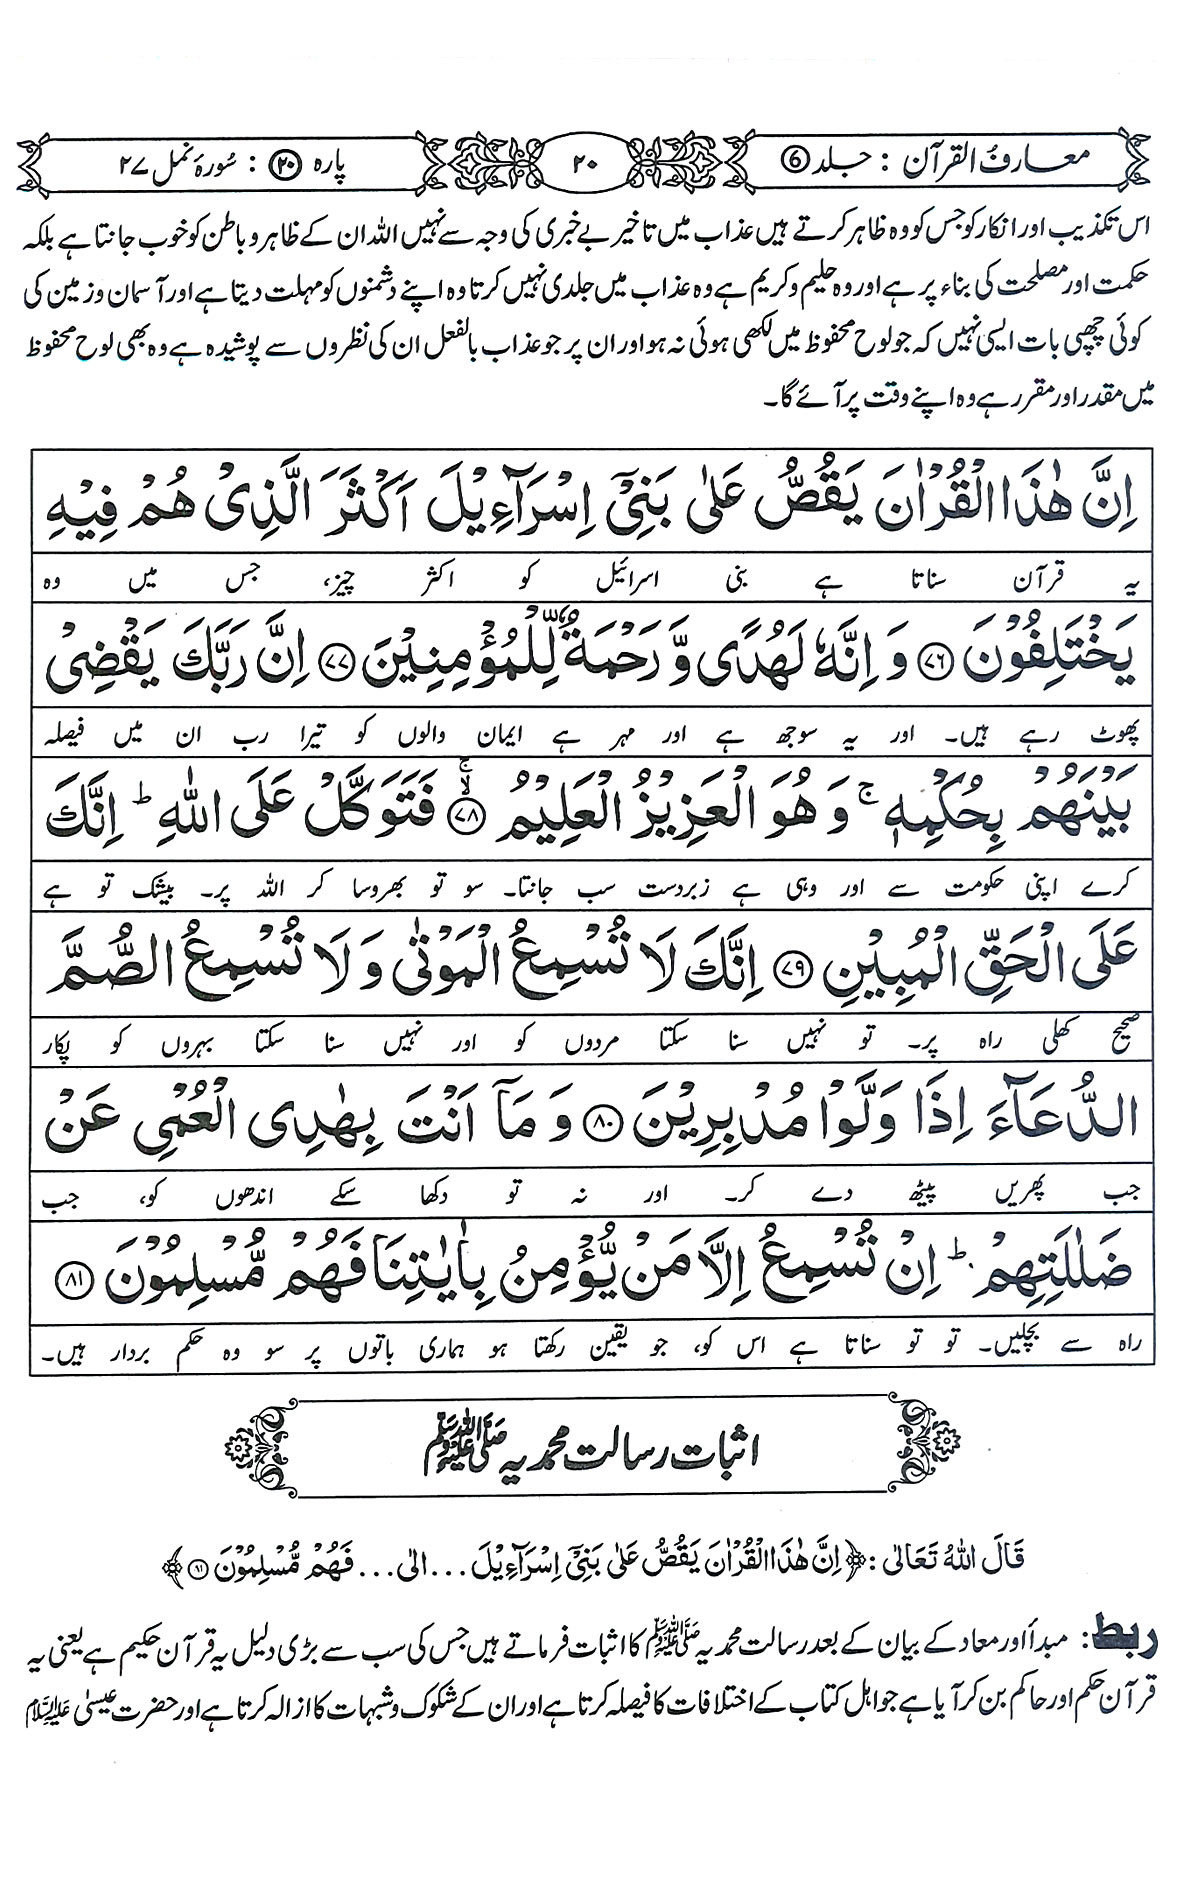 معارف القرآن : جلد 6 ۲۰ پارہ ۲۰ : سُورۂ نمل ۲۷
اس تکذیب اور انکار کو جس کو وہ ظاہر کرتے ہیں عذاب میں تاخیر بے خبری کی وجہ سے نہیں اللہ ان کے ظاہر و باطن کو خوب جانتا ہے بلکہ
حکمت اور مصلحت کی بناء پر ہے اور وہ حلیم و کریم ہے وہ عذاب میں جلدی نہیں کرتا وہ اپنے دشمنوں کو مہلت دیتا ہے اور آسمان و زمین کی
کوئی چھپی بات ایسی نہیں کہ جو لوح محفوظ میں لکھی ہوئی نہ ہو اور ان پر جو عذاب بالفعل ان کی نظروں سے پوشیدہ ہے وہ بھی لوح محفوظ
میں مقدر اور مقرر ہے وہ اپنے وقت پر آئے گا۔
اِنَّ هٰذَا الْقُرْاٰنَ يَقُصُّ عَلٰى بَنِىْٓ اِسْرَآءِيْلَ اَكْثَرَ الَّذِىْ هُمْ فِيْهِ
یہ قرآن سناتا ہے بنی اسرائیل کو اکثر چیز، جس میں وہ
يَخْتَلِفُوْنَ ۷۶ وَ اِنَّهٗ لَهُدًى وَّ رَحْمَةٌ لِّلْمُؤْمِنِيْنَ ۷۷ اِنَّ رَبَّكَ يَقْضِىْ
پھوٹ رہے ہیں۔ اور یہ سوجھ ہے اور مہر ہے ایمان والوں کو تیرا رب ان میں فیصلہ
بَيْنَهُمْ بِحُكْمِهٖ ۚ وَ هُوَ الْعَزِيْزُ الْعَلِيْمُ ۷۸ ۙۚ فَتَوَكَّلْ عَلَى اللّٰهِ ؕ اِنَّكَ
کرے اپنی حکومت سے اور وہی ہے زبردست سب جانتا۔ سو تو بھروسا کر اللہ پر۔ بیشک تو ہے
عَلَى الْحَقِّ الْمُبِيْنِ ۷۹ اِنَّكَ لَا تُسْمِعُ الْمَوْتٰى وَ لَا تُسْمِعُ الصُّمَّ
صحیح کھلی راہ پر۔ تو نہیں سنا سکتا مردوں کو اور نہیں سنا سکتا بہروں کو پکار
الدُّعَآءَ اِذَا وَلَّوْا مُدْبِرِيْنَ ۸۰ وَ مَآ اَنْتَ بِهٰدِى الْعُمْىِ عَنْ
جب پھریں پیٹھ دے کر۔ اور نہ تو دکھا سکے اندھوں کو، جب
ضَلٰلَتِهِمْ ؕ اِنْ تُسْمِعُ اِلَّا مَنْ يُّؤْمِنُ بِاٰيٰتِنَا فَهُمْ مُّسْلِمُوْنَ ۸۱
راہ سے بچلیں۔ تو تو سناتا ہے اس کو، جو یقین رکھتا ہو ہماری باتوں پر سو وہ حکم بردار ہیں۔
اثبات رسالت محمدیہ ﷺ
قَالَ اللّٰهُ تَعَالٰى : ﴿اِنَّ هٰذَا الْقُرْاٰنَ يَقُصُّ عَلٰى بَنِىْٓ اِسْرَآءِيْلَ ... الٰى ... فَهُمْ مُّسْلِمُوْنَ ۸۱﴾
ربط: مبدأ اور معاد کے بیان کے بعد رسالت محمدیہ ﷺ کا اثبات فرماتے ہیں جس کی سب سے بڑی دلیل یہ قرآن حکیم ہے یعنی یہ
قرآن حکم اور حاکم بن کر آیا ہے جو اہل کتاب کے اختلافات کا فیصلہ کرتا ہے اور ان کے شکوک و شبہات کا ازالہ کرتا ہے اور حضرت عیسیٰ علیہ السلام